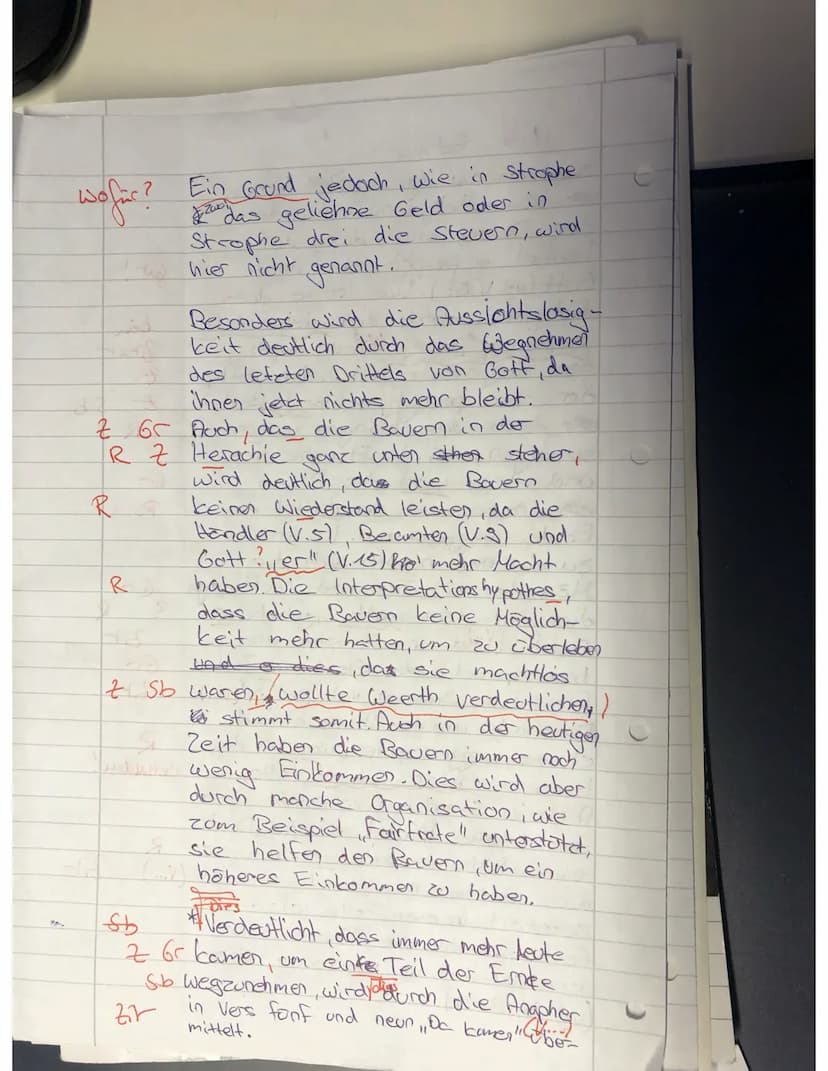 wofür? Ein Grund jedoch, wie in Strophe
zwei das geliehne Geld oder in
Strophe drei die Steuern, wird
hier nicht genannt.
Besonders wird die Aussichtslosig-
keit deutlich durch das Wegnehmen
des letzten Drittels von Gott, da
ihnen jetzt nichts mehr bleibt.
Z Gr Auch, das die Bauern in der
R Z Herachie ganz unten stehen,
wird deutlich, das die Bauern
R keinen Wiederstand leisten, da die
Händler (V.5), Beamten (V.9) und
Gott ? „er" (V.15) mehr Macht
R haben. Die Interpretationshypothes,
dass die Bauern keine Möglich-
keit mehr hatten, um zu überleben
und dies, das sie machtlos
Z Sb waren, wollte Weerth verdeutlichen,
stimmt somit. Auch in der heutigen
Zeit haben die Bauern immer noch
wenig Einkommen. Dies wird aber
durch manche Organisation, wie
zum Beispiel „Fairtrate" unterstützt,
sie helfen den Bauern, um ein
höheres Einkommen zu haben.
Dies
Sb * Verdeutlicht, dass immer mehr Leute
Z Gr kamen, um ein Teil der Ernte
Sb wegzunehmen, wird dies durch die Anapher
Zit in Vers fünf und neun „Da kamen" (V...) über-
mittelt.